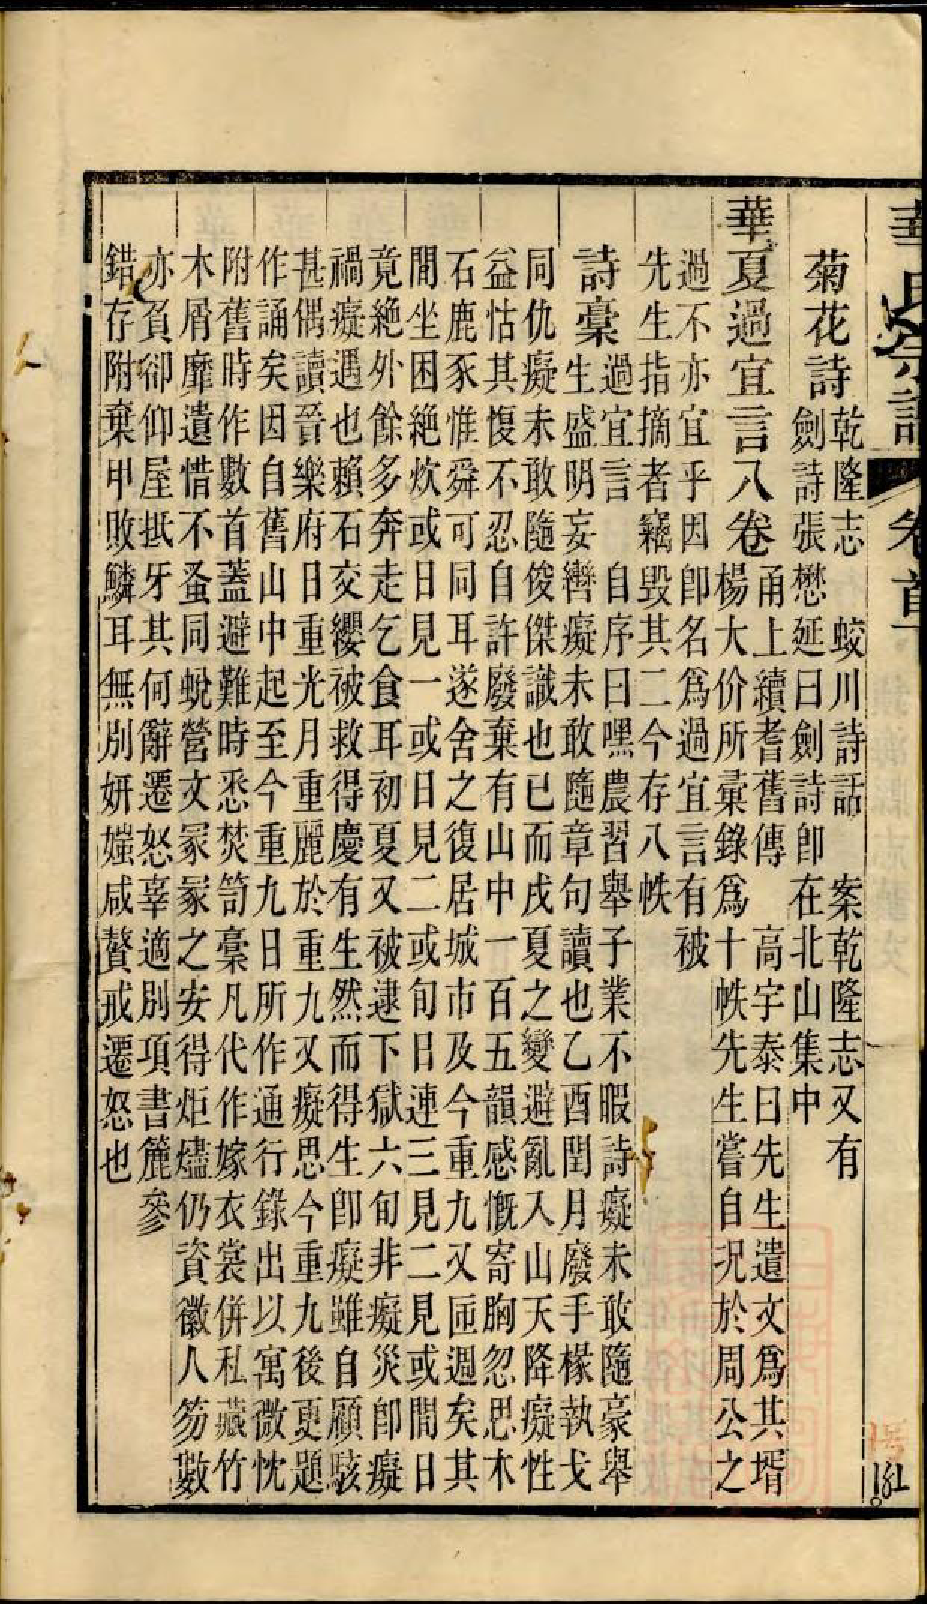 華氏宗譜 卷首下
菊花詩 乾隆志 蛟川詩話 案乾隆志又有
劍詩張懋延曰劍詩卽在北山集中
華夏過宜言八卷 甬上續耆舊傳 高宇泰曰先生遺文爲其壻
楊大价所彙錄爲十帙先生嘗自況於周公之
過不亦宜乎因卽名爲過宜言有被
先生指摘者竊毀其二今存八帙
詩稾 過宜言 自序曰嘿農習舉子業不暇詩癡未敢隨豪舉
生盛明妄辔癡未敢隨章句讀也乙酉閏月廢手椽執戈
同仇癡未敢隨俊傑識也已而戌夏之變避亂入山天降癡性
益怙其愎不忍自許廢棄有山中一百五韻感慨寄胸忽思木
石鹿豕惟舜可同耳遂舍之復居城市及今重九又匝週矣其
閒坐困絶炊或日見一或日見二或旬日連三見二見或閒日
竟絶外餘多奔走乞食耳初夏又被逮下獄六旬非癡災卽癡
禍癡遇也賴石交纓被救得慶有生然而得生卽癡雖自顧駭
甚偶讀晉樂府日重光月重麗於重九又癡思今重九後更題
作誦矣因自舊山中起至今重九日所作通行錄出以寓微忱
附舊時作數首蓋避難時悉焚笥稾凡代作嫁衣裳併私藏竹
木屑靡遺惜不蚤同蛻營文冢冢之安得炬燼仍資徽人笏數
亦負卻仰屋抵牙其何辭遷怒辜適別項書簏參
錯存附棄甲敗鱗耳無別妍媸咸贅戒遷怒也